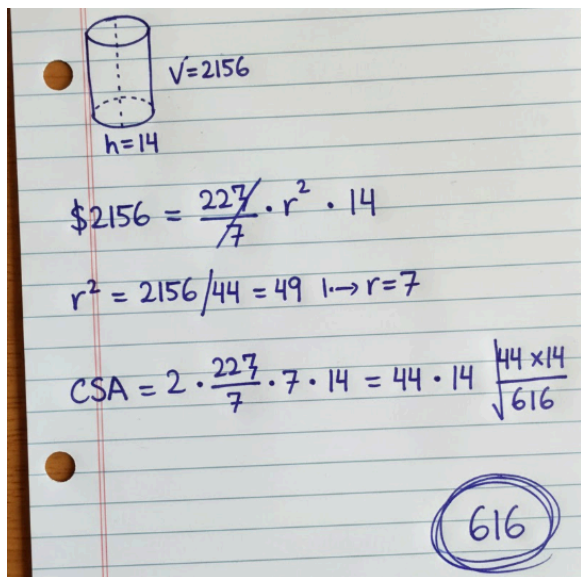 V=2156
h=14
$2156 = 227/7 · r² · 14
r² = 2156/44 = 49 |·→ r=7
CSA = 2 · 227/7 · 7 · 14 = 44 · 14
44 × 14
√616
616